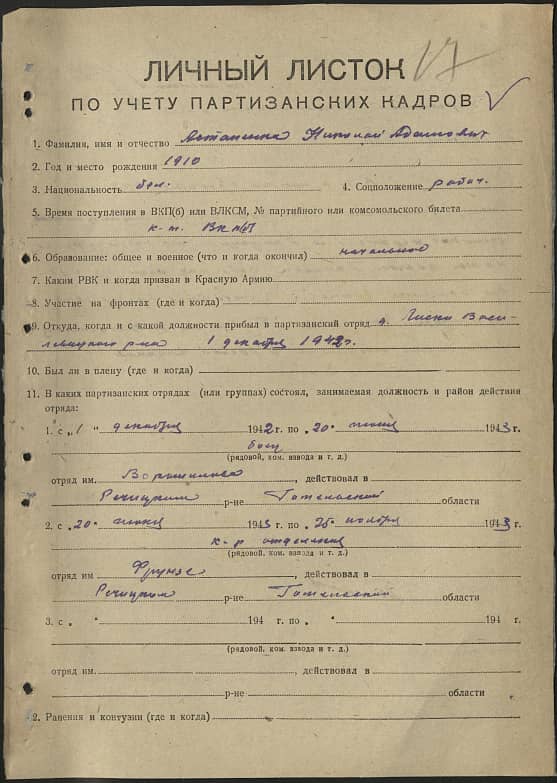 17
ЛИЧНЫЙ ЛИСТОК
ПО УЧЕТУ ПАРТИЗАНСКИХ КАДРОВ
1. Фамилия, имя и отчество Астапенко Николай Адамович
2. Год и место рождения 1910
3. Национальность бел. 4. Соцположение рабоч.
5. Время поступления в ВКП(б) или ВЛКСМ, № партийного или комсомольского билета
к-т. ВКП(б)
6. Образование: общее и военное (что и когда окончил) начальное
7. Каким РВК и когда призван в Красную Армию
8. Участие на фронтах (где и когда)
9. Откуда, когда и с какой должности прибыл в партизанский отряд д. Васи-
левицкого р-на 1 декабря 1942г.
10. Был ли в плену (где и когда)
11. В каких партизанских отрядах (или группах) состоял, занимаемая должность и район действия
отряда:
1. с „1 " декабря 1942 г. по „20" июня 1943 г.
боец
(рядовой, ком. взвода и т. д.)
отряд им. Ворошилова, действовал в
Речицком р-не Гомельской области
2. с „20" июня 1943 г. по „25" ноября 1943 г.
к-р отделения
(рядовой, ком. взвода и т. д.)
отряд им Фрунзе, действовал в
Речицком р-не Гомельской области
3. с „ " 194 г. по „ " 194 г.
(рядовой, ком. взвода и т. д.)
отряд им., действовал в
р-не области
2. Ранения и контузии (где и когда)